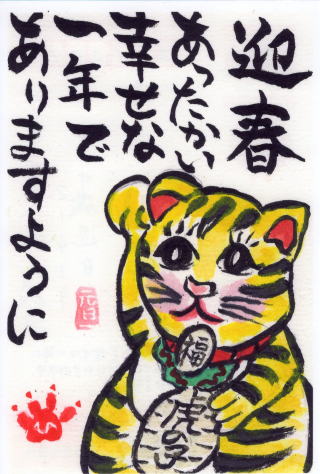 迎春
あったかい
幸せな
一年で
ありますように
元旦
福
虎の子